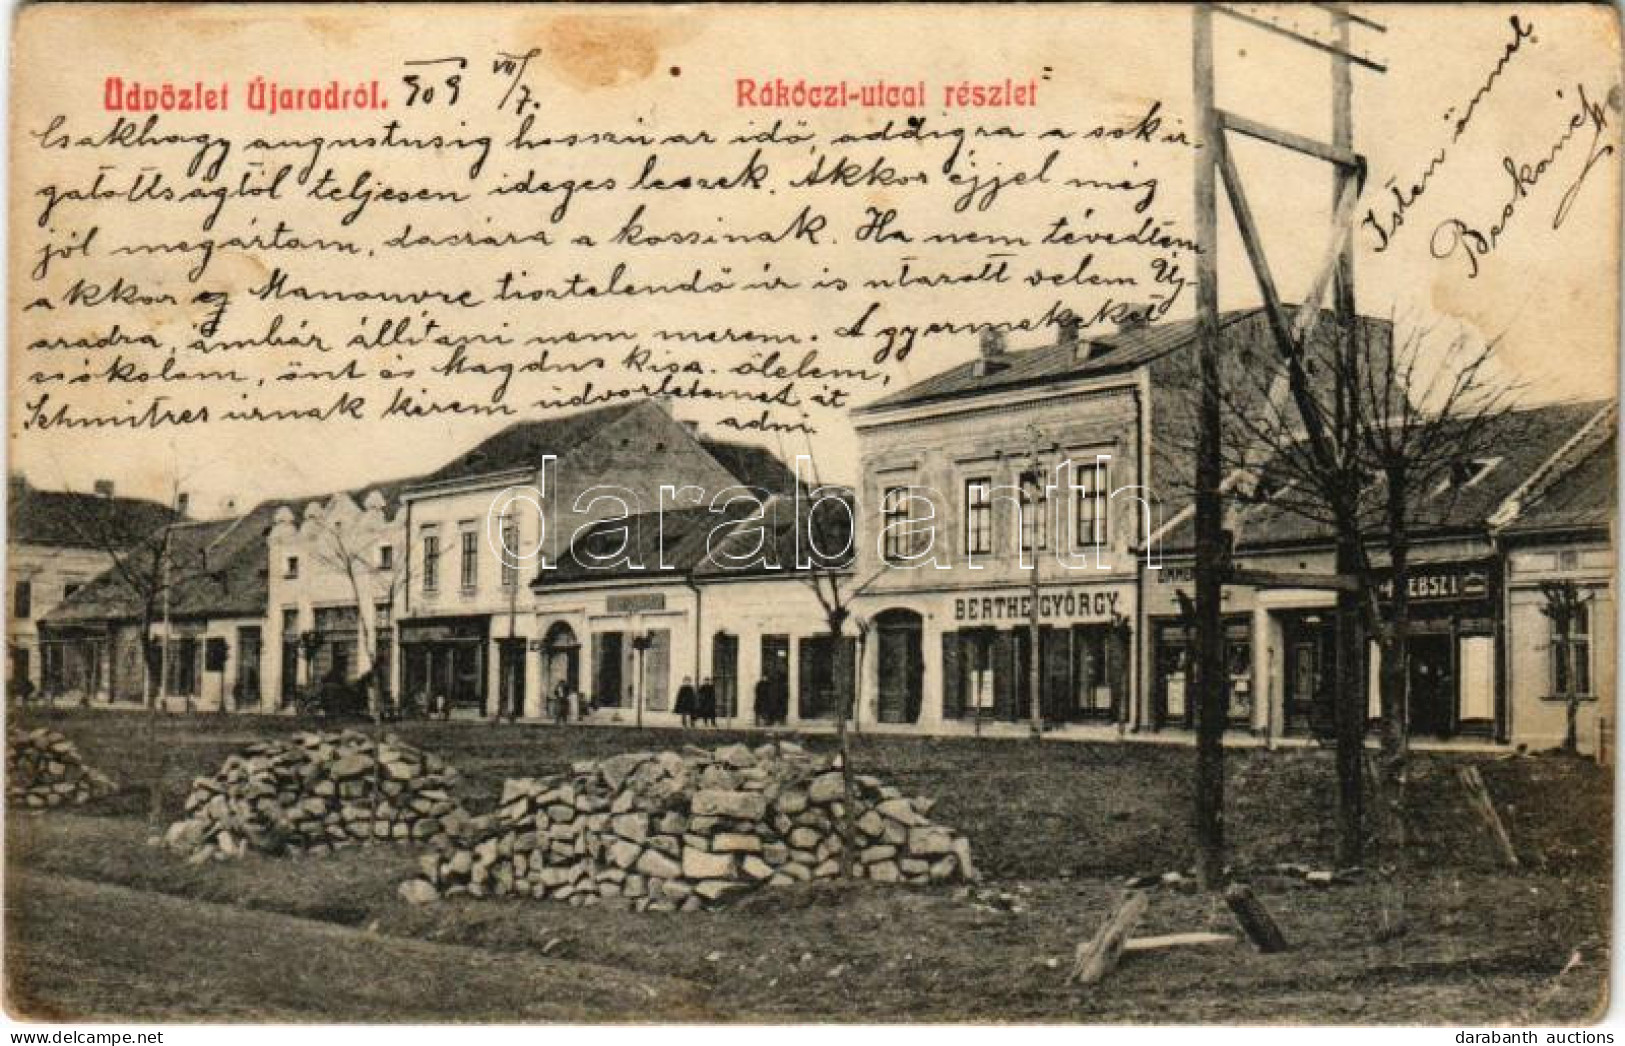 Üdvözlet Újaradról. 909 VII/7.
Rákóczi-utcai részlet
Csakhogy augustusig hosszú az idő, addigra a sok iz-
gatottságtól teljesen ideges leszek. Akkor éjjel még
jól megártam, daczára a kossinak. Ha nem tévedtem
akkor Manouvre tisztelendő úr is utazott velem Új-
aradra, ámbár állítani nem merem. A gyermekeket
csókolom, önt és Magdus kisa. ölelem,
Schmitzes úrnak kérem üdvözletemet át
adni
Isten önnel.
BERTHE GYÖRGY
EBSZI
darabanth
darabanth auctions